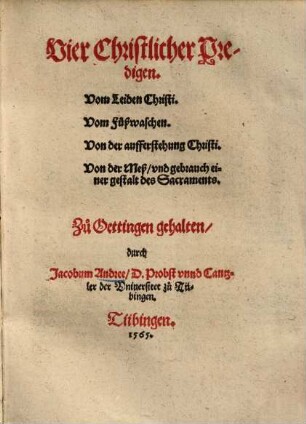 Vier Christlicher Pre-
digen.
Vom Leiden Christi.
Vom Fůßwaschen.
Von der aufferstehung Christi.
Von der Meß/ vnd gebrauch ei-
ner gestalt des Sacraments.
Zů Oettingen gehalten/
durch
Jacobum Andree/ D. Probst vnnd Cantz-
ler der Vniuersitet zů Tü-
bingen.
Tübingen.
1565.